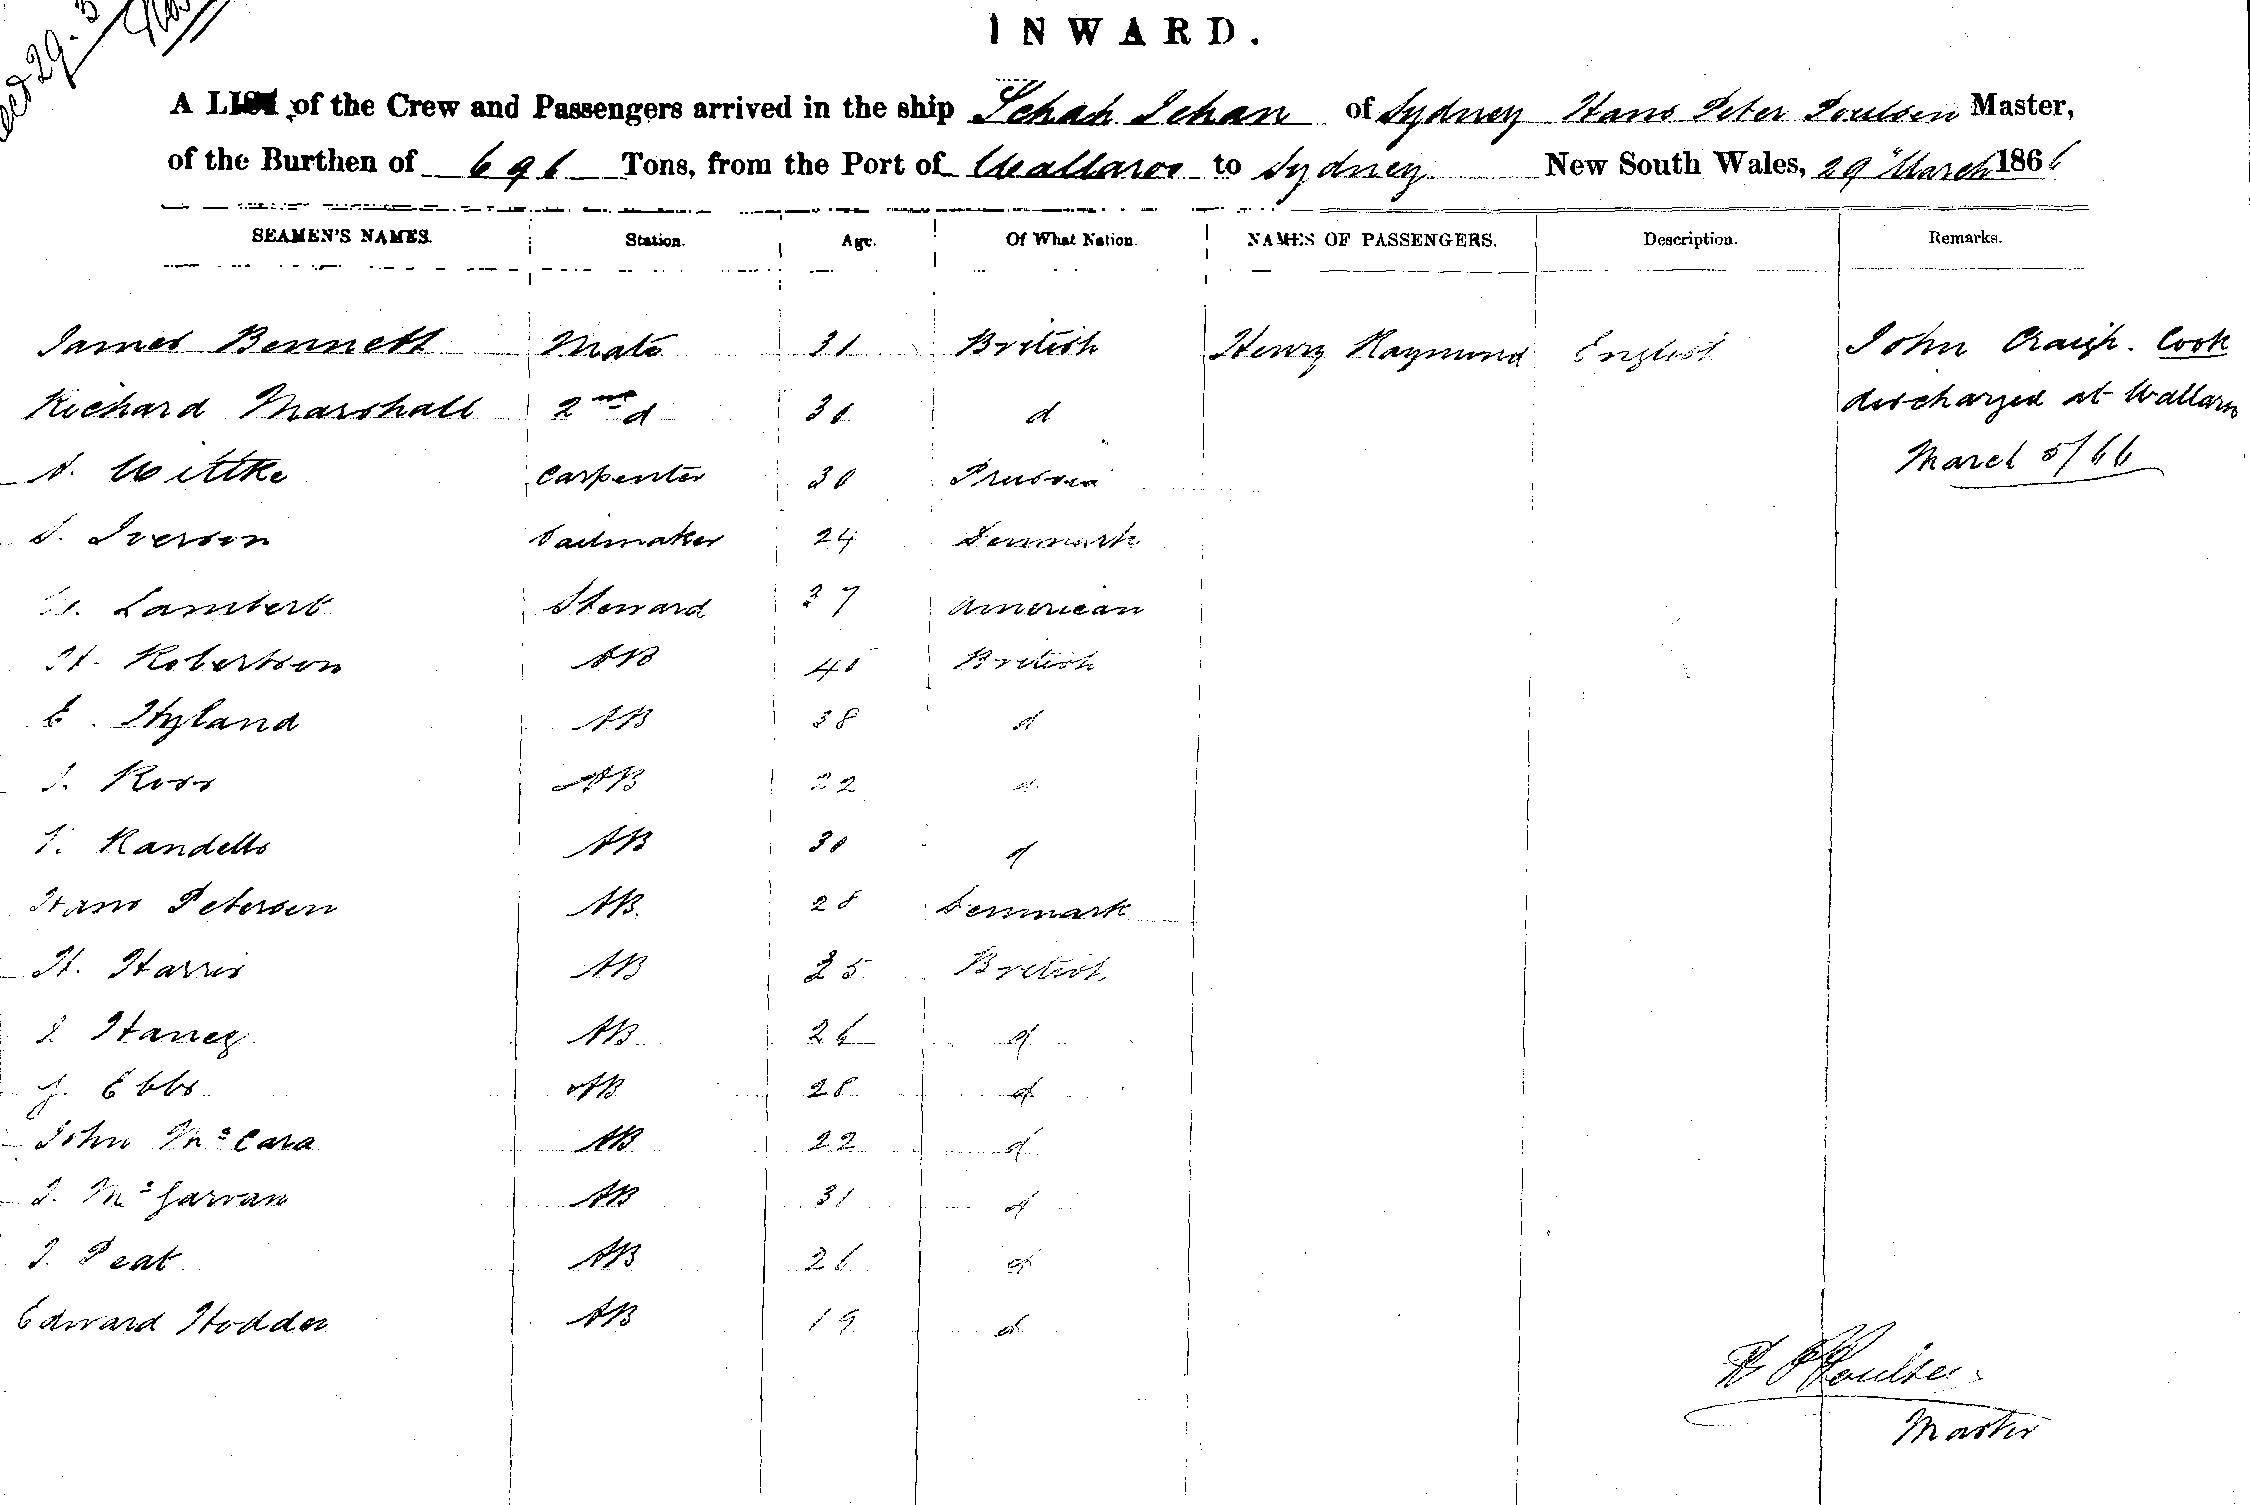 INWARD.
A LIST of the Crew and Passengers arrived in the ship Schah Jehan of Sydney Hans Peter Poulsen Master,
of the Burthen of 696 Tons, from the Port of Wallaroo to Sydney New South Wales, 29 March 1866
SEAMEN'S NAMES. Station. Age. Of What Nation. NAMES OF PASSENGERS. Description. Remarks.
James Bennett Mate 31 British Henry Raymond English John Craigh. Cook
Richard Marshall 2nd d 30 d discharged at Wallaroo
March 5/66
A. Wittke Carpenter 30 Prussia
Iverson Sailmaker 24 Denmark
Lambert Steward 37 American
H. Robertson AB 40 British
E. Hyland AB 38 d
J. Ross AB 22 d
Randells AB 30 d
Hans Petersen AB 28 Denmark
H. Harris AB 25 British
J Haney AB 26 d
J. Ebbs AB 28 d
John McCara AB 22 d
J. McGarvan AB 31 d
J. Peat AB 26 d
Edward Hodder AB 19 d
H P Poulsen
Master